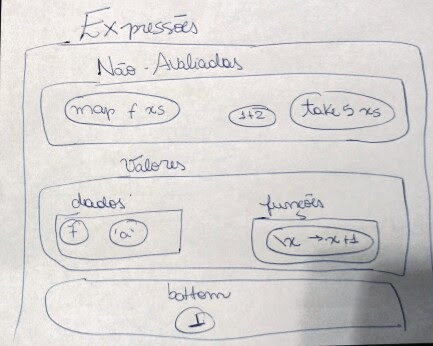 Expressões
Não-Avaliadas
map f xs
1+2
take 5 xs
Valores
dados
funções
7
'a'
\x → x+1
bottom
⊥